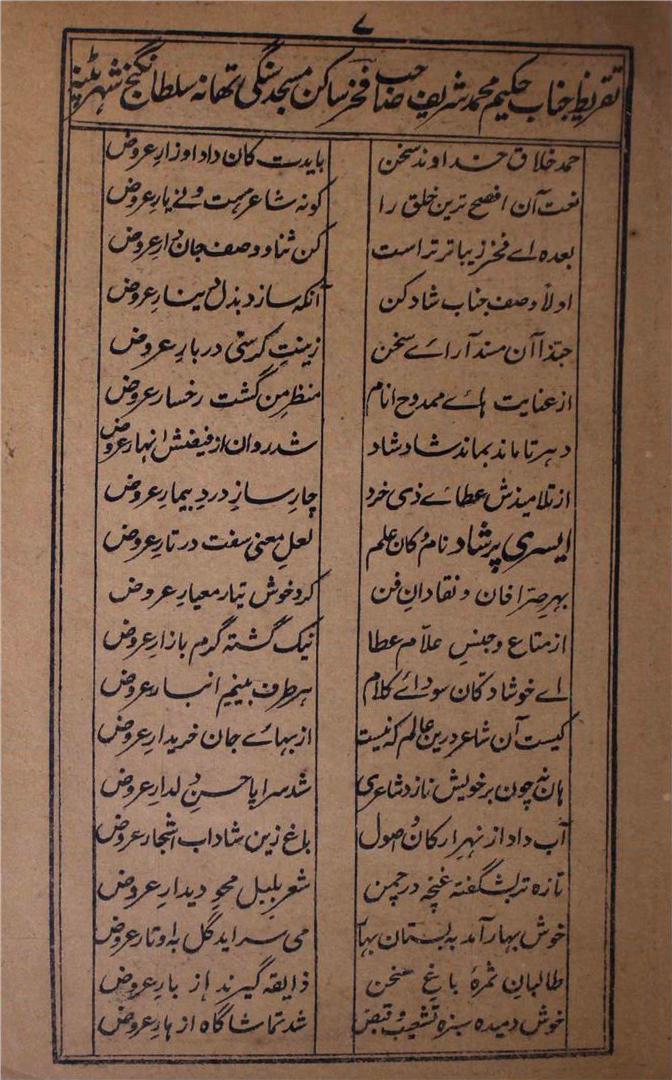 ۷
تقریظ جناب حکیم محمد شریف صاحب فخر ساکن مسجد سنگی تھانہ سلطانگنج شہر پٹنہ
حمد خلاق خداوند سخن بایدت کان داد اوزار عروض
نعت آن افصح ترین خلق را کو نہ شاعر ہست ونے یار عروض
بعدہ اے فخر زیبا تر تراست کن ثنا و وصف جاندار عروض
اولاً وصف جناب شاد کن آنکہ سازد بذل دینار عروض
حبذا آن مسند آراے سخن زینتِ کرسئی دربارِ عروض
از عنایت ہاے ممدوح انام منظر من گشت رخسار عروض
دہر تا ماند بماند شاد شاد شد روان از فیضش انہار عروض
از تلامیذش عطاے ذی خرد چارہ سازِ دردِ بیمار عروض
ایسری پرشاد نام کان علم لعلِ معنی سفت در تارِ عروض
بہر صرافان و نقادانِ فن کرد خوش تیار معیارِ عروض
از متاع و جنسِ علام عطا نیک گشتہ گرم بازارِ عروض
اے خوشا دکان سوداے کلام ہر طرف بینم انبار عروض
کیست آن شاعر درین عالم کہ نیست از بہاے جان خریدار عروض
ہان نہ چون بر خویش نازد شاعری شد سراپا حسنِ دلدار عروض
آب داد از نہر ارکان و اصول باغ زین شاداب اشجار عروض
تازہ تر بشگفتہ غنچہ در چمن شعر بلبل محو دیدار عروض
خوش بہار آمد بہ بستان بہار می سراید گل بہ اوتار عروض
طالبانِ ثمرۂ باغِ سخن ذایقہ گیرند از بارِ عروض
خوش دمیدہ سبزہ تشعیث و قبض شد تماشا گاہ ازہار عروض